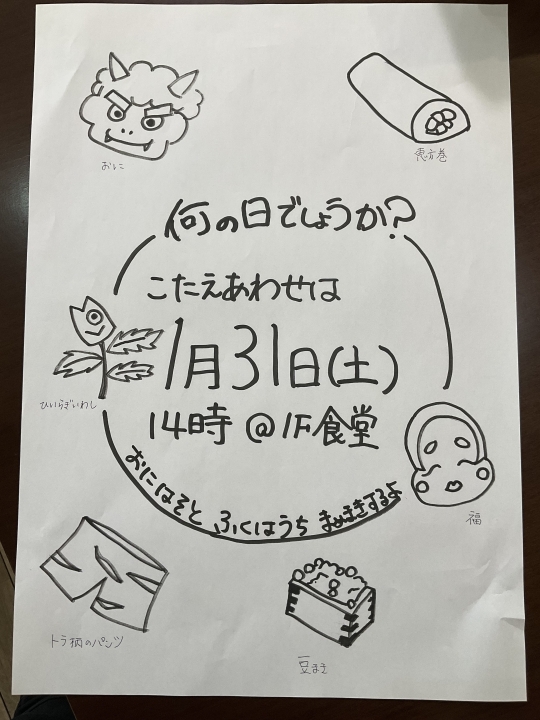 おに
恵方巻
何の日でしょうか?
こたえあわせは
1月31日(土)
ひいらぎいわし
14時 @1F食堂
おにはそと ふくはうち まめまきするよ
福
トラ柄のパンツ
豆まき